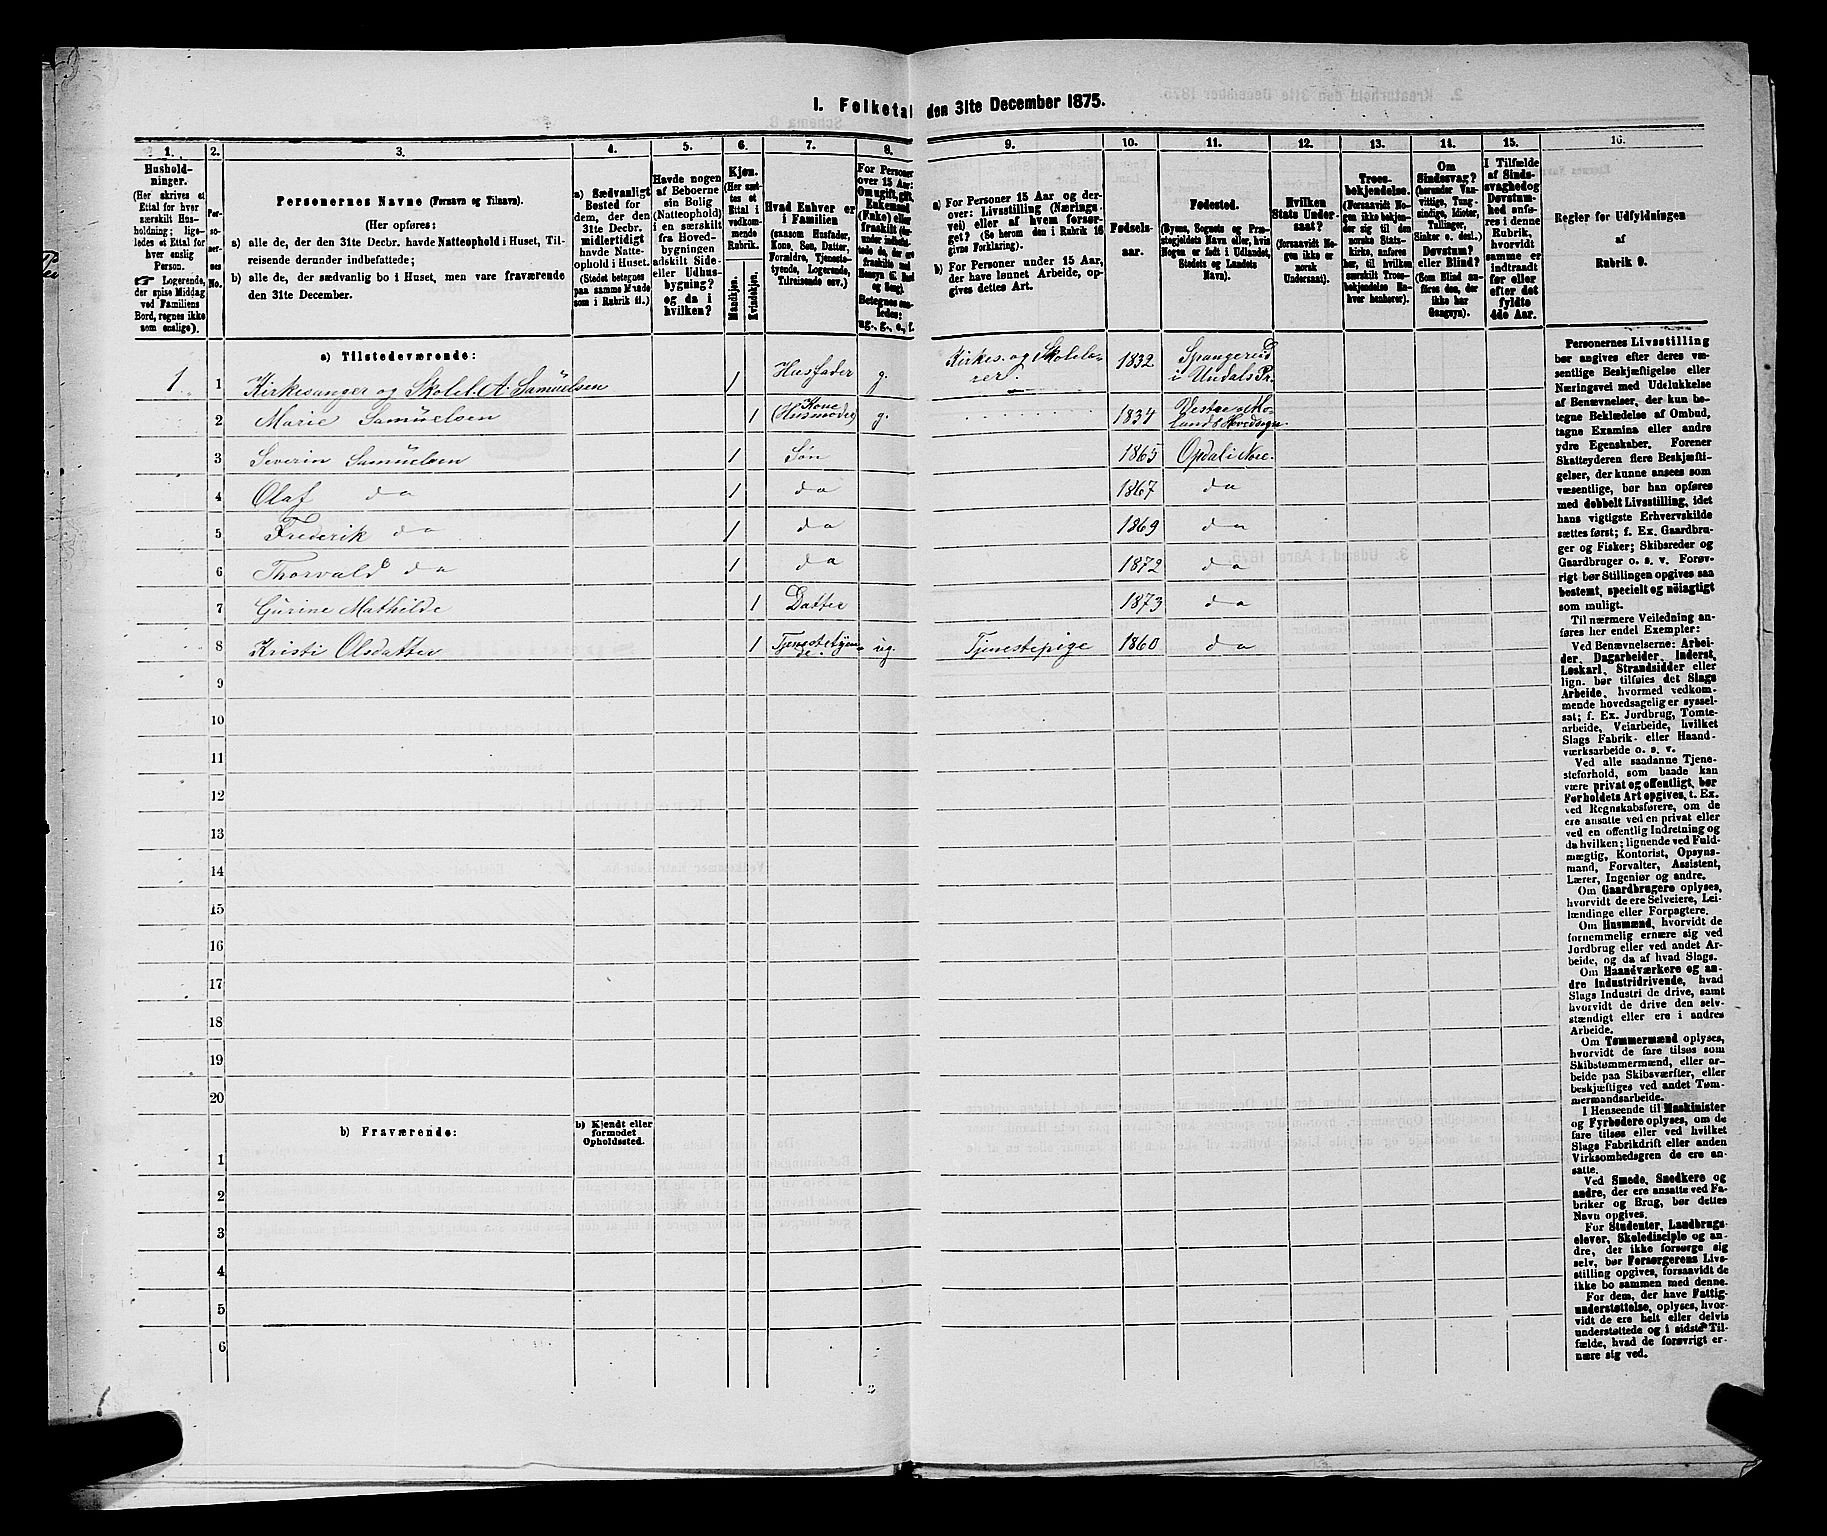 I. Folketal den 31te December 1875.
1.
2.
3.
4.
5.
6.
7.
8.
9.
10.
11.
12.
13.
14.
15.
16.
Hushold-
ninger.
(Her skrives et
Ettal for hver
særskilt Hus-
holdning; lige-
ledes et Ettal for
hver enslig
Person.
☞ Logerende,
der spise Middag
ved Familiens
Bord, regnes ikke
som enslige).
Per-
so-
ner-
nes
No.
Personernes Navne (Fornavn og Tilnavn).
(Her opføres:
a) alle de, der den 31te Decbr. havde Natteophold i Huset, Til-
reisende derunder indbefattede;
b) alle de, der sædvanlig bo i Huset, men vare fraværende
den 31te December.
a) Sædvanligt
Bosted for
dem, der den
31te Decbr.
midlertidigt
havde Natte-
ophold i Huset.
(Stedet betegnes
paa samme Maade
som i Rubrik 11.)
Havde nogen
af Beboerne
sin Bolig
(Natteophold)
i en særskilt
fra Hoved-
bygningen
adskilt Side-
eller Udhus-
bygning?
og da i
hvilken?
Kjøn.
(Her sæt-
tes et
Ettal i
vedkom-
mende
Rubrik.
Mandkjøn.
Kvindekjøn.
Hvad Enhver er
i Familien
(saasom Husfader,
Kone, Søn, Datter,
Forældre, Tjeneste-
tyende, Logerende,
Tilreisende osv.)
For Personer
over 15 Aar:
Om ugift, gift,
Enkemand
(Enke) eller
fraskilt
Betegnes saa-
ledes:
ug., g., e., f.
a) For Personer 15 Aar og der-
over: Livsstilling (Nærings-
vei) eller af hvem forsør-
get? (Se herom den i Rubrik 16
givne Forklaring).
b) For Personer under 15 Aar,
der have lønnet Arbeide, op-
gives dettes Art.
Fødsels-
aar.
Fødested.
(Byens, Sognets og Præ-
stegjeldets Navn eller, hvis
Nogen er født i Udlandet,
Stedets og Landets
Navn).
Hvilken
Stats Under-
saat?
(forsaavidt No-
gen ikke er
norsk
Undersaat).
Troes-
bekjendelse.
(Forsaavidt No-
gen ikke bekjen-
der sig til den
norske Stats-
kirke, anføres
her, til hvilken
særskilt Troes-
bekjendelse En-
hver henhører).
Om
Sindssvag?
(herunder Van-
vittige, Tung-
sindige, Idioter,
Tullinger,
Sinker o. desl.)
Døvstum?
eller Blind?
(Som Blind an-
føres den, der
ikke har
Gangsyn).
I Tilfælde
af Sinds-
svaghed og
Døvstum-
hed anfø-
res i denne
Rubrik,
hvorvidt
samme er
indtraadt
før eller
efter det
fyldte
4de Aar.
Regler for Udfyldningen
af
Rubrik 9.
a) Tilstedeværende:
1 1 Kirkesanger og Skolel. A. Samuelsen 1 Husfader g. Kirkes. og Skolelæ-
rer. 1832 Spangereid
i Undals Pr.
2 Marie Samuelsen 1 Kone
(Husmoder) g. 1834 Vestre
3 Severin Samuelsen 1 Søn 1865 Opdal i Nore.
4 Olaf do 1 do 1867 do
5 Frederik do 1 do 1869 do
6 Thorvald do 1 do 1872 do
7 Gurine Mathilde 1 Datter 1873 do
8 Kristi Olsdatter 1 Tjenestetyen-
de. ug. Tjenestepige 1860 do
9
10
11
12
13
14
15
16
17
18
19
20
b) Fraværende:
b) Kjendt eller
formodet
Opholdssted.
1
2
3
4
5
6
Personernes Livsstilling
bør angives efter deres væ-
sentlige Beskjæftigelse eller
Næringsvei med Udelukkelse
af Benævnelser, der kun be-
tegne Beklædelse af Ombud,
tagne Examina eller andre
ydre Egenskaber. Forener
Skatteyderen flere Beskjæfti-
gelser, der kunne ansees som
væsentlige, bør han opføres
med dobbelt Livsstilling, idet
hans vigtigste Erhvervskilde
sættes først; f. Ex. Gaardbru-
ger og Fisker; Skibsreder og
Gaardbruger o. s. v. Forøv-
rigt bør Stillingen opgives saa
bestemt, specielt og nöiagtigt
som muligt.
Til nærmere Veiledning an-
føres her endel Exempler:
Ved Benævnelserne: Arbei-
der, Dagarbeider, Inderst,
Løskarl, Strandsidder eller
lign. bør tilføies det Slags
Arbeide, hvormed vedkom-
mende hovedsagelig er syssel-
sat; f. Ex. Jordbrug, Tomte-
arbeide, Veiarbeide, hvilket
Slags Fabrik- eller Haand-
værksarbeide o. s. v.
Ved alle saadanne Tjene-
steforhold, som baade kan
være privat og offentligt, bør
Forholdets Art opgives, t. Ex.
ved Regnskabsførere, om de
ere ansatte ved en privat eller
ved en offentlig Indretning og
da hvilken; lignende ved Fuld-
mægtig, Kontorist, Opsyns-
mand, Forvalter, Assistent,
Lærer, Ingeniør og andre.
Om Gaardbrugere oplyses,
hvorvidt de ere Selveiere, Lei-
lændinge eller Forpagtere.
Om Husmænd, hvorvidt de
fornemmelig ernære sig ved
Jordbrug eller ved andet Ar-
beide, og da af hvad Slags.
Om Haandværkere og an-
dre Industridrivende, hvad
Slags Industri de drive, samt
hvorvidt de drive den selv-
stændigt eller ere i andres
Arbeide.
Om Tømmermænd oplyses,
hvorvidt de fare tilsøs som
Skibstømmermænd, eller ar-
beide paa Skibsværfter, eller
beskjæftiges ved andet Tøm-
mermandsarbeide.
I Henseende til Maskinister
og Fyrbødere oplyses, om de
fare tilsøs eller ved hvilket
Slags Fabrikdrift eller anden
Virksomhedsgren de ere an-
satte.
Ved Smede, Snedkere og
andre, der ere ansatte ved Fa-
briker og Brug, bør dettes
Navn opgives.
For Studenter, Landbrugs-
elever, Skoledisciple og an-
dre, der ikke forsørge sig
selv, bør Forsørgerens Livs-
stilling opgives, forsaavidt de
ikke bo sammen med denne.
For dem, der have Fattig-
understøttelse, oplyses, hvor-
vidt de ere helt eller delvis
understøttede og i sidste Til-
fælde, hvad de forøvrigt er-
nære sig ved.